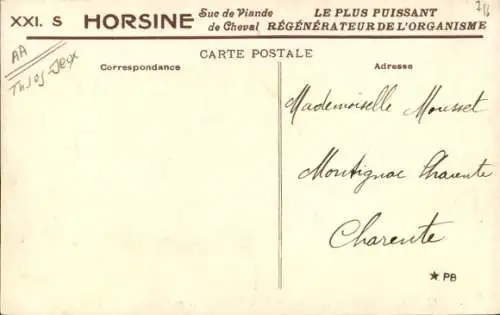 XXI. S HORSINE Suc de Viande de Cheval LE PLUS PUISSANT RÉGÉNÉRATEUR DE L'ORGANISME
AA
CARTE POSTALE
Correspondance
Adresse
Mademoiselle Mousset
Montignac Charente
Charente
★ PB